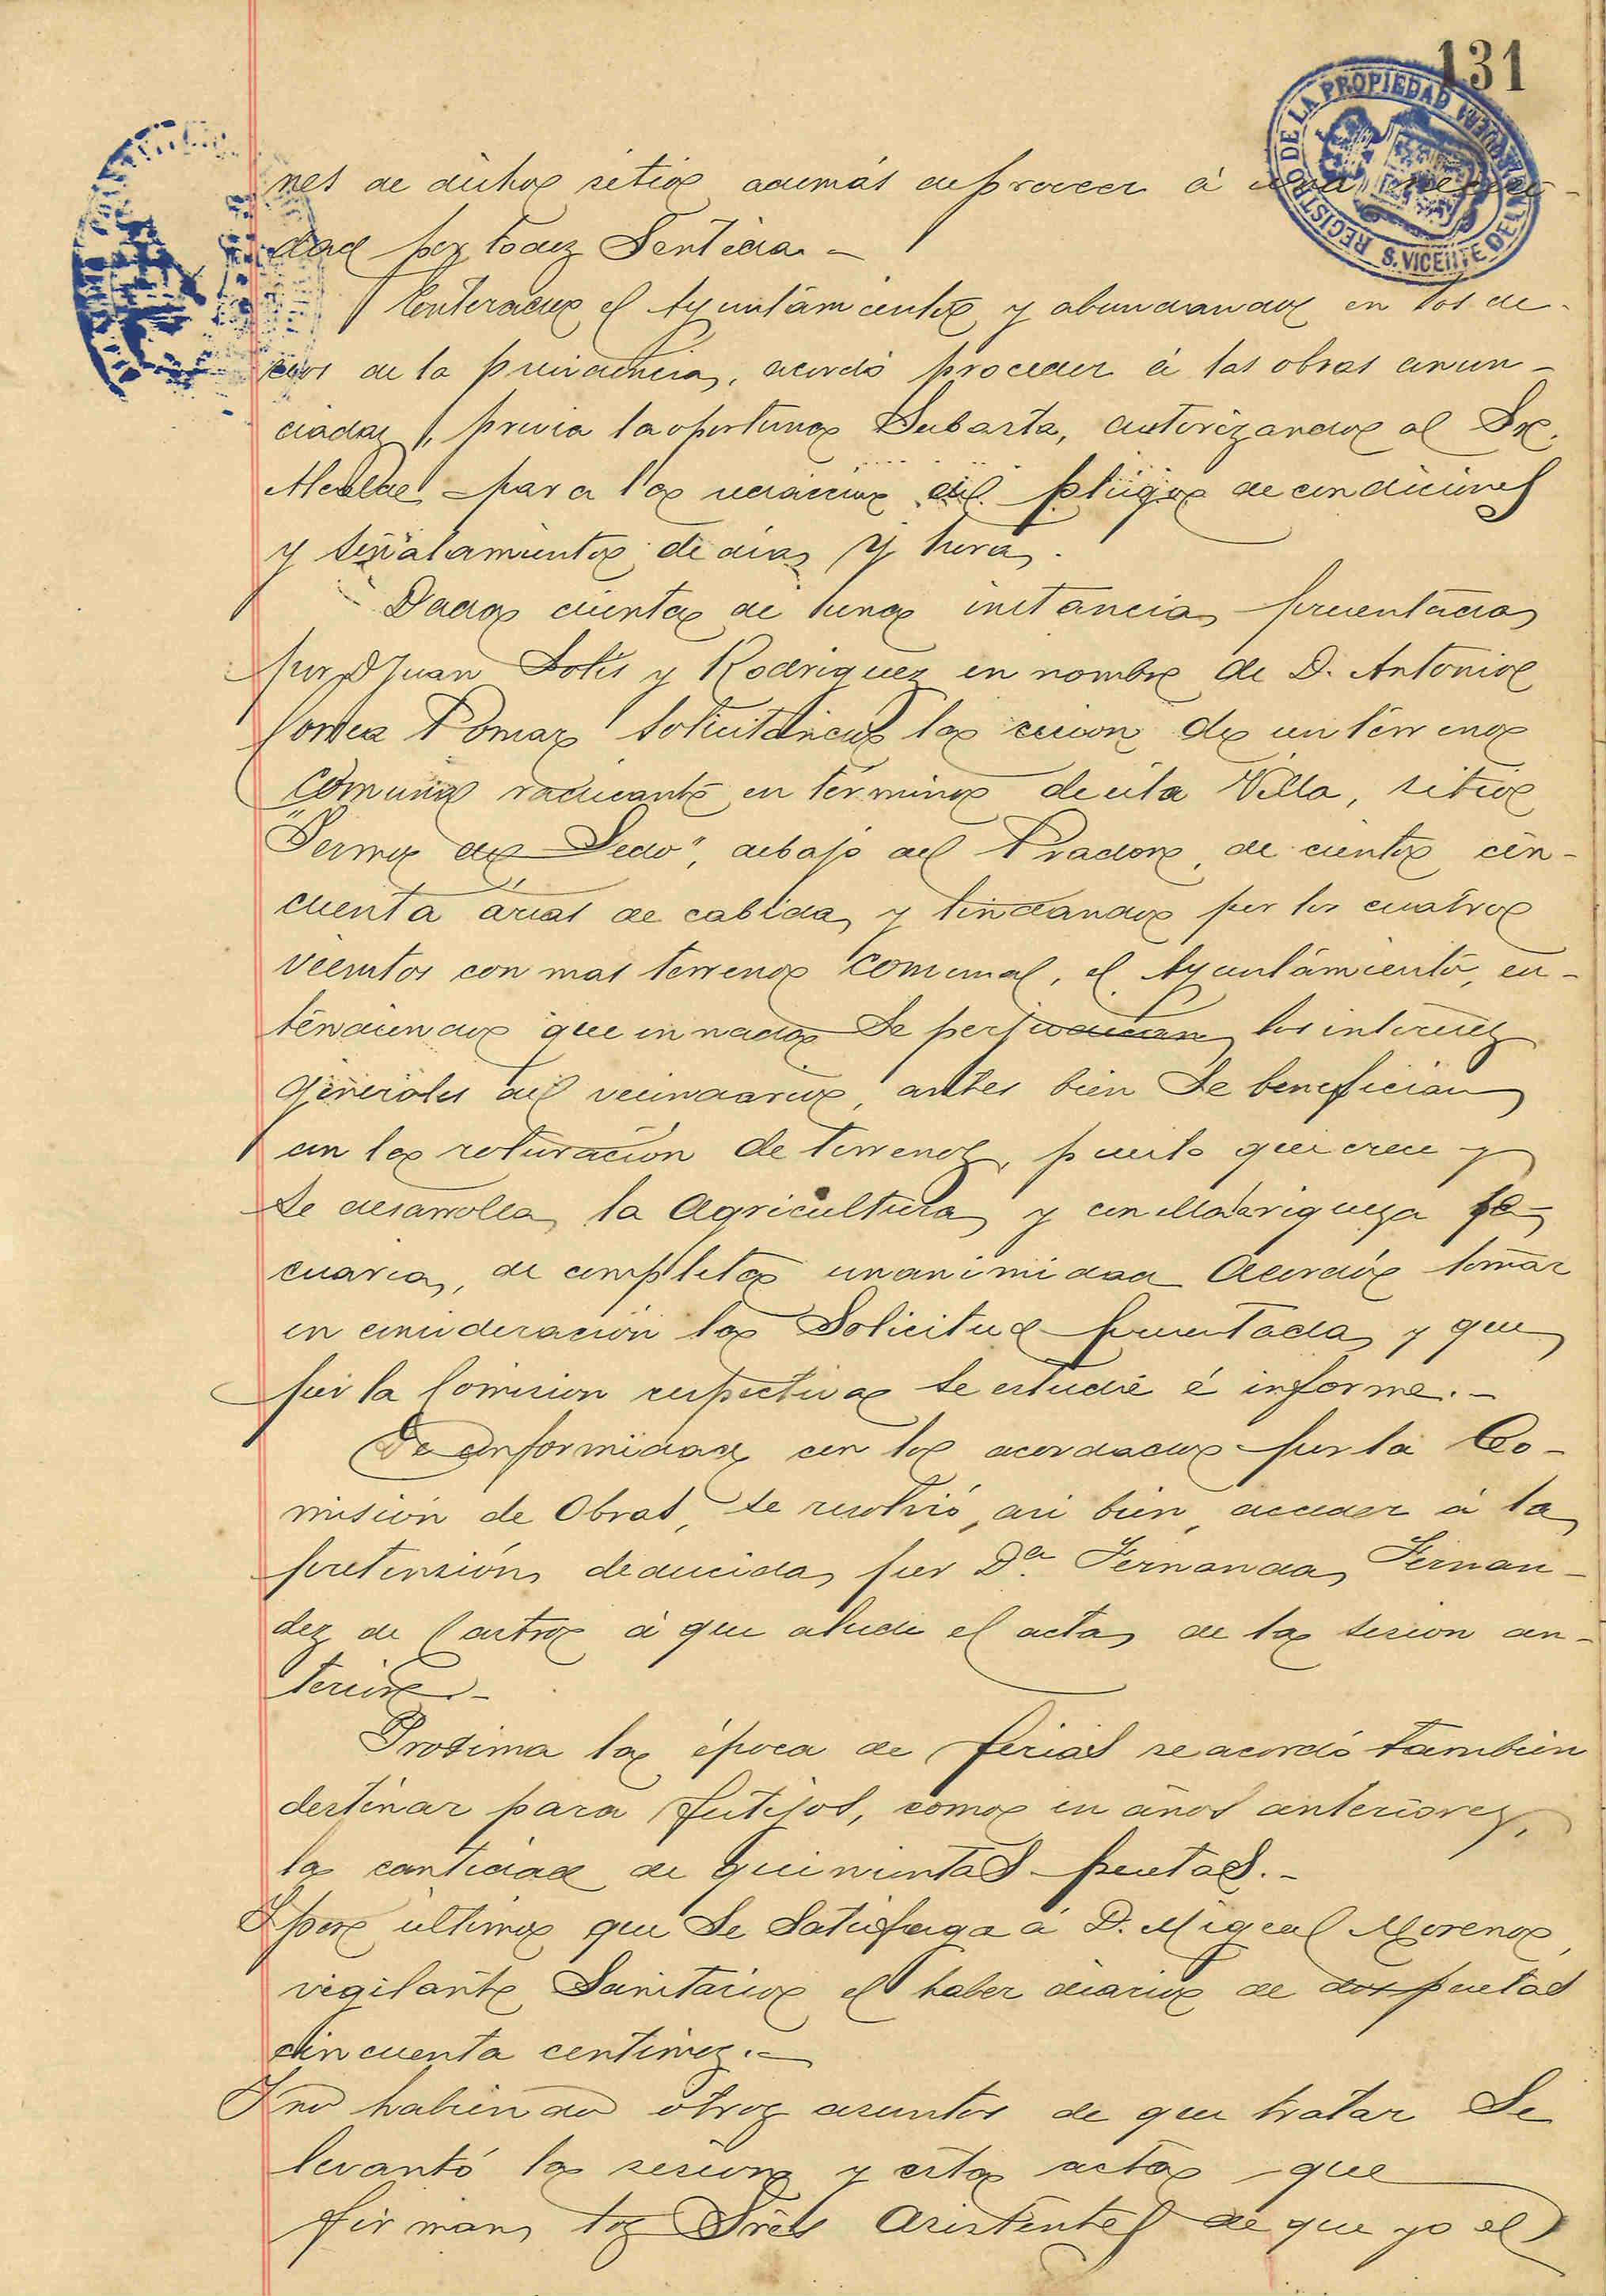 131
REGISTRO DE LA PROPIEDAD
S. VICENTE DE LA BARQUERA
nes de dichos sitios además de proveer á una necesi-
dad por todos sentida.-
Enterado el Ayuntamiento y abundando en los de-
seos de la presidencia, acordó proceder á las obras anun-
ciadas, previa la oportuna Subasta, autorizando al Sr.
Alcalde para la redacción del pliego de condiciones
y señalamiento de dia y hora.
Dada cuenta de una instancia presentada
por D Juan Solís y Rodriguez en nombre de D. Antonio
Correa Pomar solicitando la cesion de un terreno
comunal radicante en término de esta Villa, sitio
de", debajo del Pradon, de ciento cin-
cuenta áreas de cabida y lindando por los cuatro
vientos con mas terreno comunal, el Ayuntamiento, en-
tendiendo que en nada se perjudican los intereses
generales del vecindario, antes bien se benefician
con la roturación de terrenos, puesto que crece y
se desarrolla la agricultura y con ella la riqueza pe-
cuaria, de completa unanimidad acordó tomar
en consideración la Solicitud presentada y que
por la Comision respectiva se estudie é informe.-
De conformidad con lo acordado por la Co-
misión de Obras, se resolvió, asi bien, acceder á la
pretensión deducida por Dª. Fernanda Fernan-
dez de Castro á que alude el acta de la sesion an-
terior.-
Proxima la época de ferias se acordó tambien
destinar para festejos, como en años anteriores,
la cantidad de quinientas pesetas.-
Y por último que se satisfaga á D. Migeal Moreno,
vigilante Sanitario el haber diario de dos pesetas
cincuenta centimos.-
Y no habiendo otros asuntos de que tratar se
levantó la sesion y esta acta que
firman los Sres asistentes de que yo el